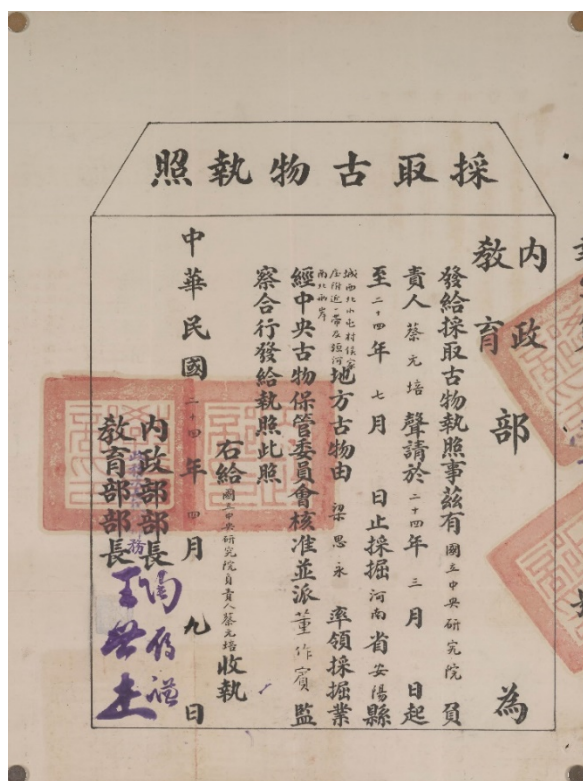 採取古物執照
內政部
教育部
為
發給採取古物執照事茲有國立中央研究院負
責人蔡元培聲請於二十四年三月 日起
至二十四年七月 日止採掘河南省安陽縣
城西北小屯村侯家
庄附近一帶及洹河
南北兩岸
地方古物由梁思永率領採掘業
經中央古物保管委員會核准並派董作賓監
察合行發給執照此照
右給國立中央研究院負責人蔡元培收執
中華民國二十四年四月九日
內政部部長
教育部部長王世杰